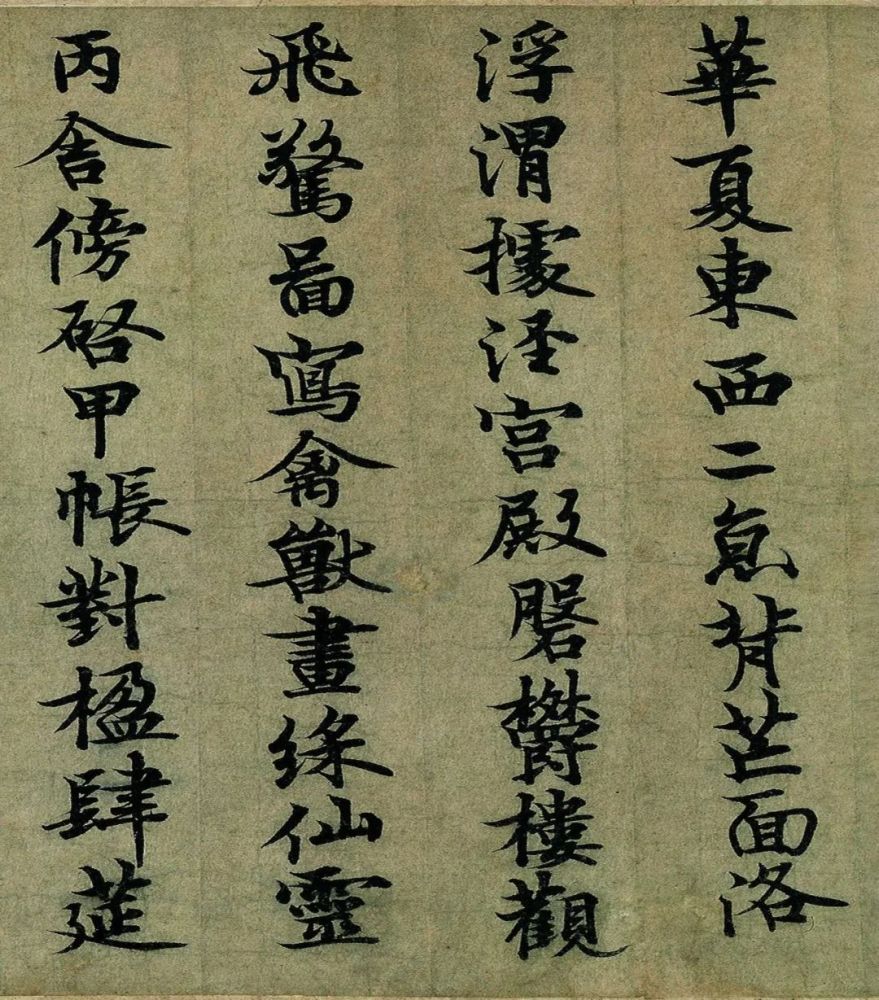 華夏東西二京背芒面洛
浮渭據涇宮殿磐欝樓觀
飛驚圖寫禽獸畫綵仙靈
丙舍傍啓甲帳對楹肆莚